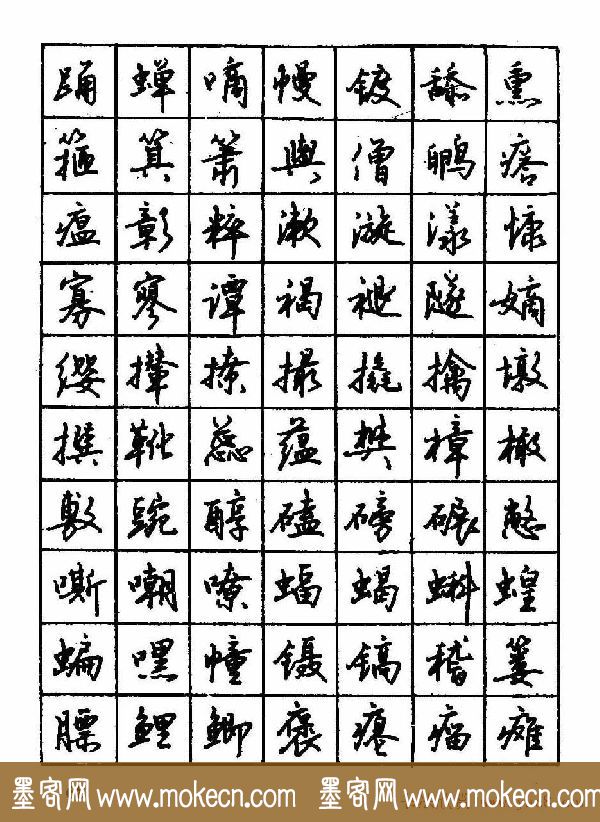 踊蝉嘀幔镀舔熏
箍箕箫舆僧瘩
瘟彰粹漱漩漾慷
寡寥谭褐褪隧嫡
缨撵撩撮撬擒墩
撰蕊蕴樊樟橄
敷豌醇磕磅碾憋
嘶嘲嘹蝠蝎蝌蝗
蝙嘿幢镊镐稽篓
膘鲤鲫褒瘪瘤瘫
墨客网 www.mokecn.com 墨客网 www.mokecn.com